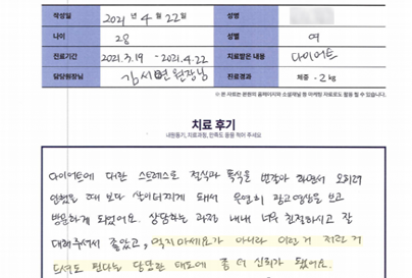 작성일 2021 년 4 월 22일 성명
나이 28 성별 여
진료기간 2021.3.19 - 2021.4.22 치료받은 내용 다이어트
담당원장님 원장님 진료결과 체중 -2kg
※ 본 자료는 본원의 홈페이지와 소셜채널 등 마케팅 자료로도 활용 될 수 있습니다.
치료 후기
내원동기, 치료과정, 만족도 등을 적어 주세요
다이어트에 대한 스트레스로 절식과 폭식을 번갈아 하면서 오히려
안했을 때 보다 살이 더찌게 돼서 우연히 광고영상을 보고
방문하게 되었어요. 상담하는 과정 내내 너무 친절하시고 잘
대해주셔서 좋았고, 먹지마세요가 아니라 이런거 저런거
드셔도 된다는 당당한 태도에 좀 더 신뢰가 됐어요.